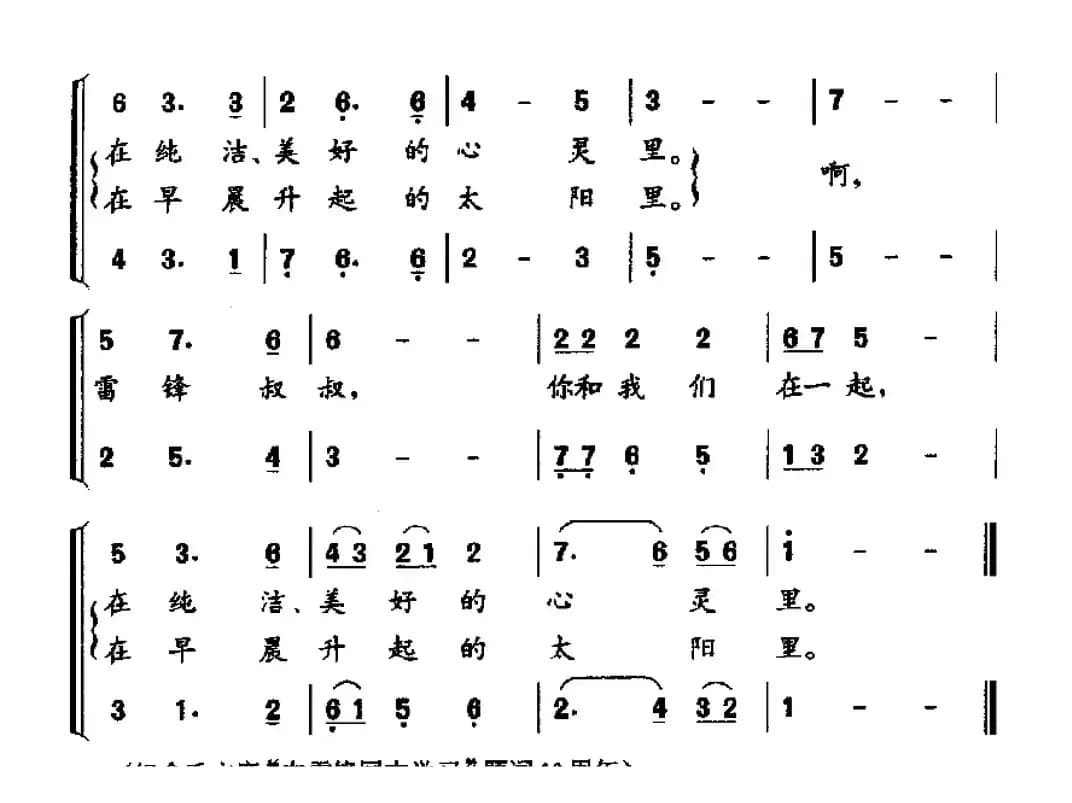 6 3. 3 | 2 6. 6 | 4 - 5 | 3 - - | 7 - - |
在纯洁、美好的心灵里。 啊,
在早晨升起的太阳里。
4 3. 1 | 7 6. 6 | 2 - 3 | 5 - - | 5 - - |
5 7. 6 | 6 - - | 22 2 2 | 67 5 - |
雷锋叔叔, 你和我们在一起,
2 5. 4 | 3 - - | 77 6 5 | 13 2 - |
5 3. 6 | 43 21 2 | 7. 6 56 | 1 - - ‖
在纯洁、美好的心灵里。
在早晨升起的太阳里。
3 1. 2 | 61 5 6 | 2. 4 32 | 1 - - ‖